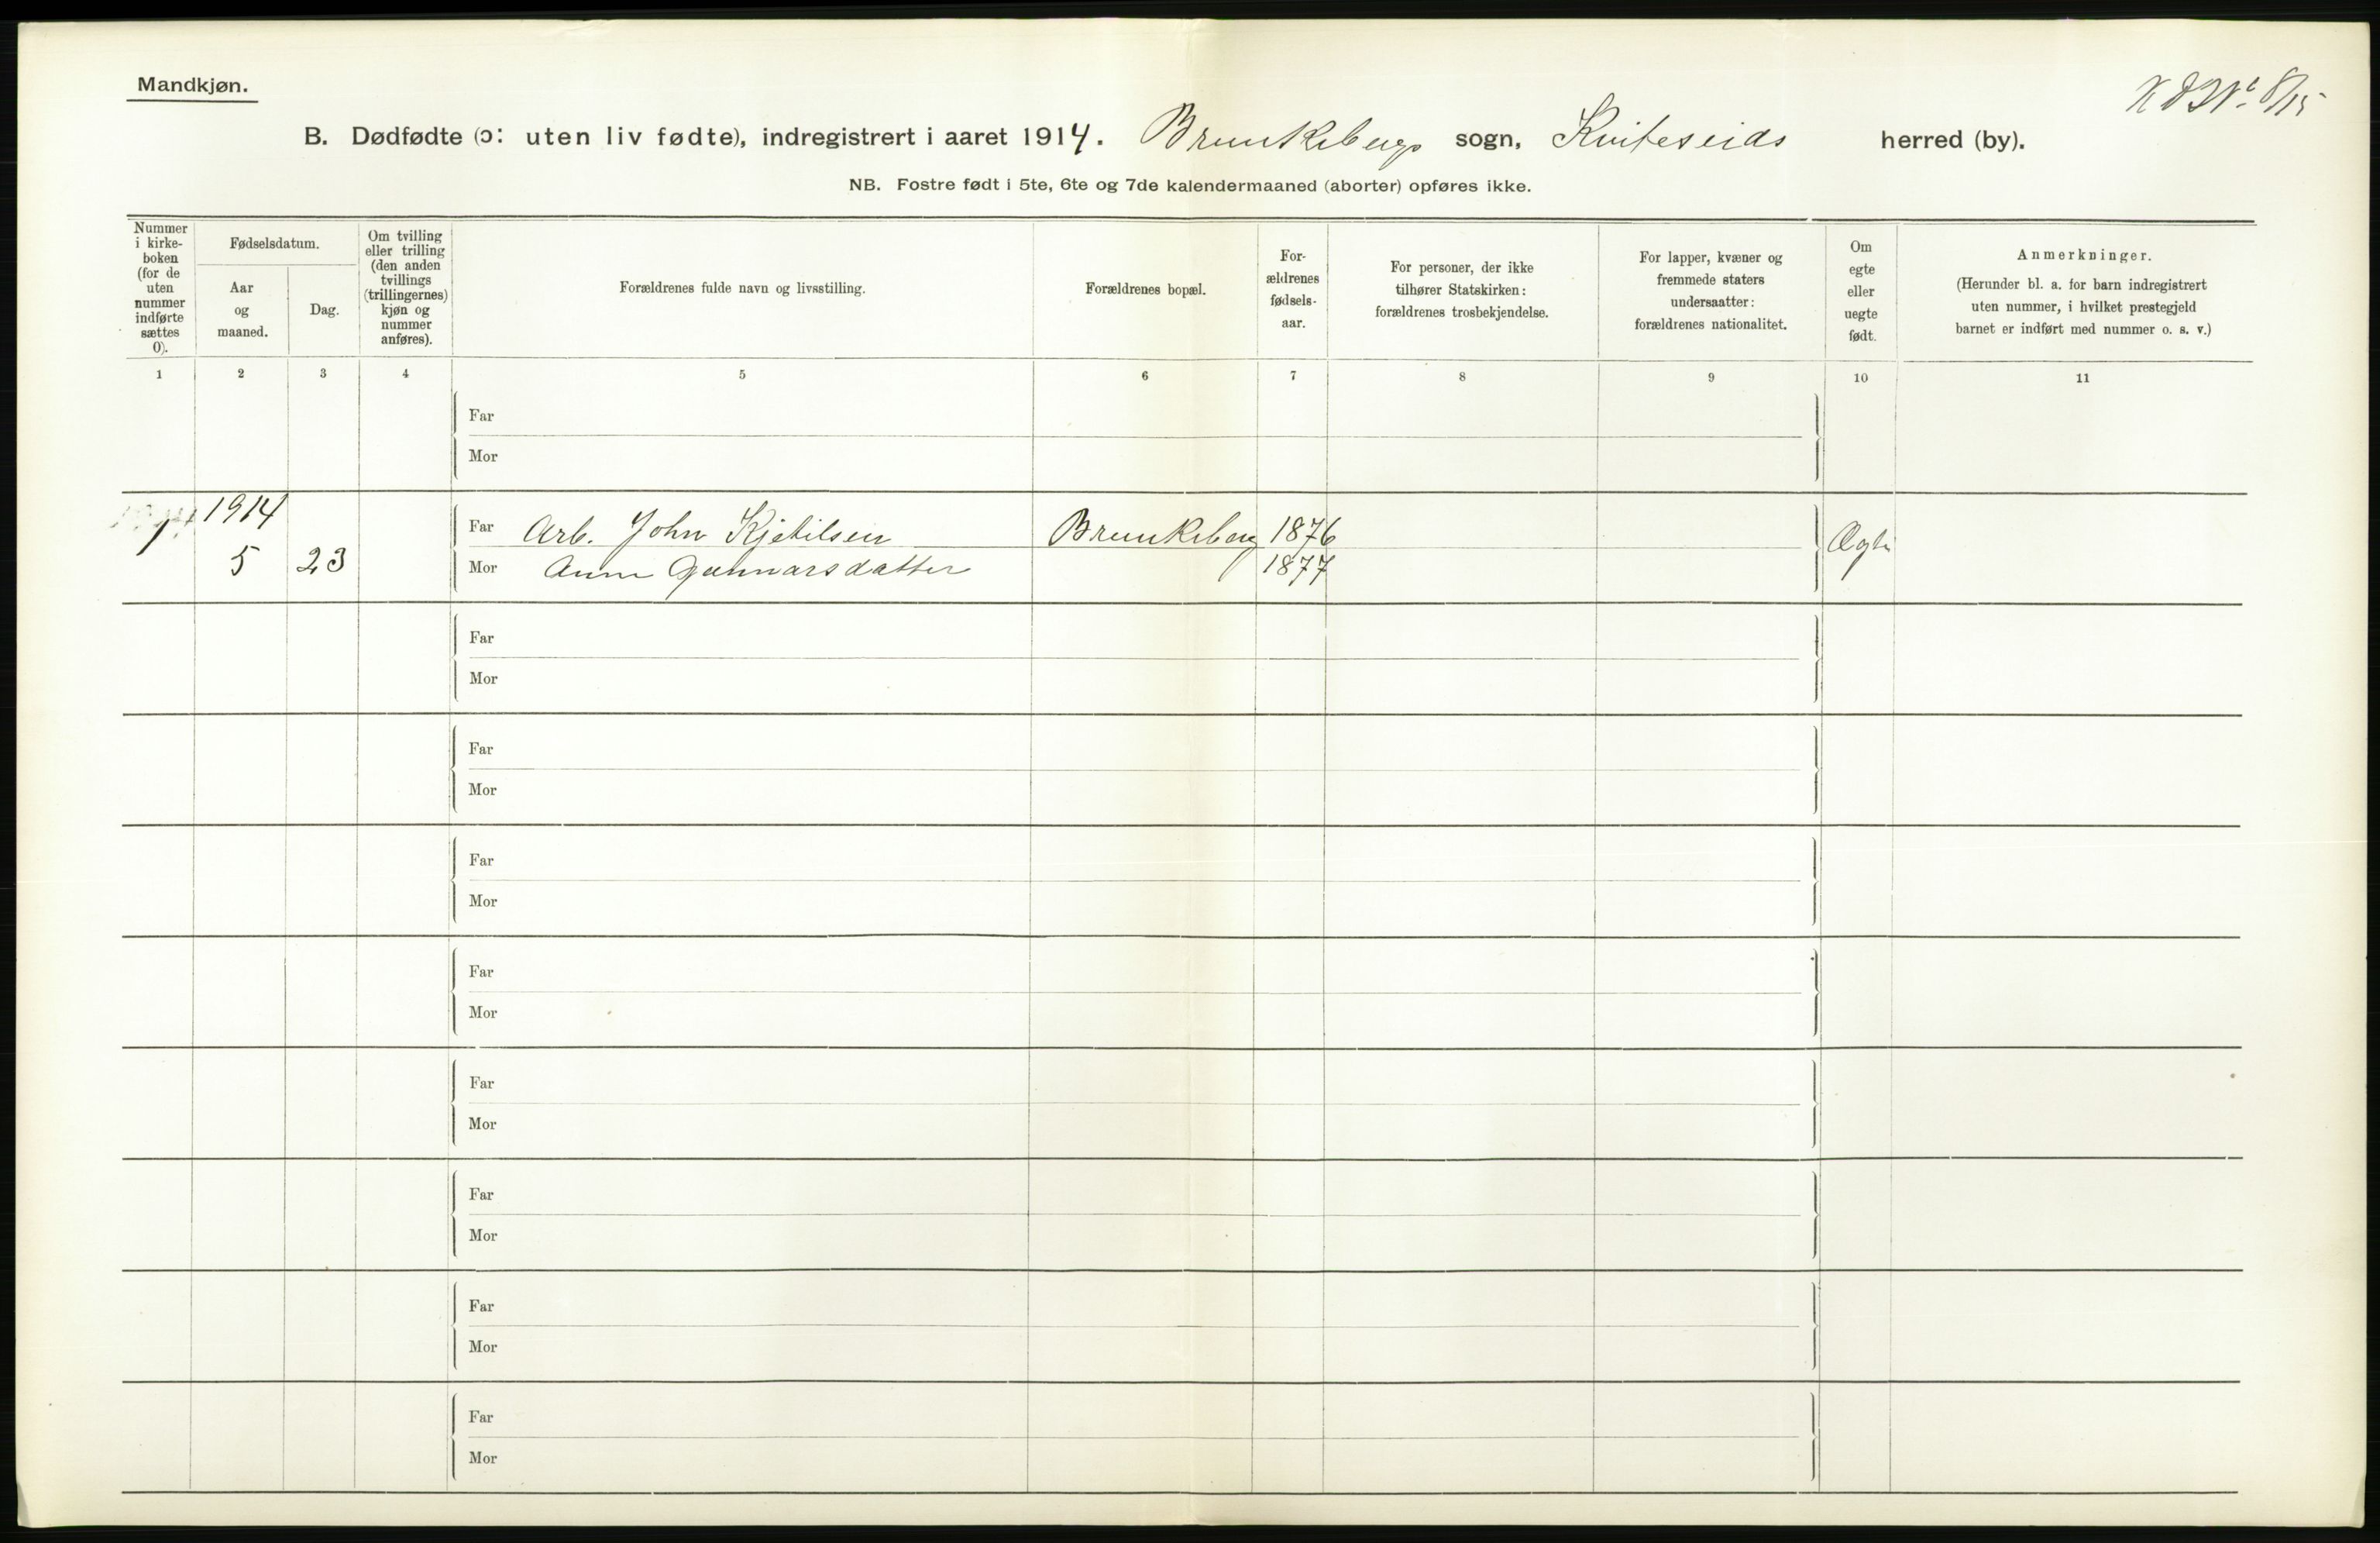 Mandkjøn.
B. Dødfødte (ɔ: uten liv fødte), indregistrert i aaret 1914. Brunkebergs sogn, Kviteseids herred (by).
NB. Fostre født i 5te, 6te og 7de kalendermaaned (aborter) opføres ikke.
Nummer i kirke-
boken
(for de
uten
nummer
indførte
sættes
0).
Fødselsdatum.
Aar
og
maaned.
Dag.
Om tvilling
eller trilling
(den anden
tvillings
(trillingernes)
kjøn og
nummer
anføres).
Forældrenes fulde navn og livsstilling.
Forældrenes bopæl.
For-
ældrenes
fødsels-
aar.
For personer, der ikke
tilhører Statskirken:
forældrenes trosbekjendelse.
For lapper, kvæner og
fremmede staters
undersaatter:
forældrenes nationalitet.
Om
egte
eller
uegte
født.
Anmerkninger.
(Herunder bl. a. for barn indregistrert
uten nummer, i hvilket prestegjeld
barnet er indført med nummer o. s. v.)
1 2 3 4 5 6 7 8 9 10 11
Far
Mor
1914
1 Far Arb. John Kjetilsen Brunkeberg 1876 Ægte
5 23 Mor Anne Gunnarsdatter 1877
Far
Mor
Far
Mor
Far
Mor
Far
Mor
Far
Mor
Far
Mor
Far
Mor
Far
Mor